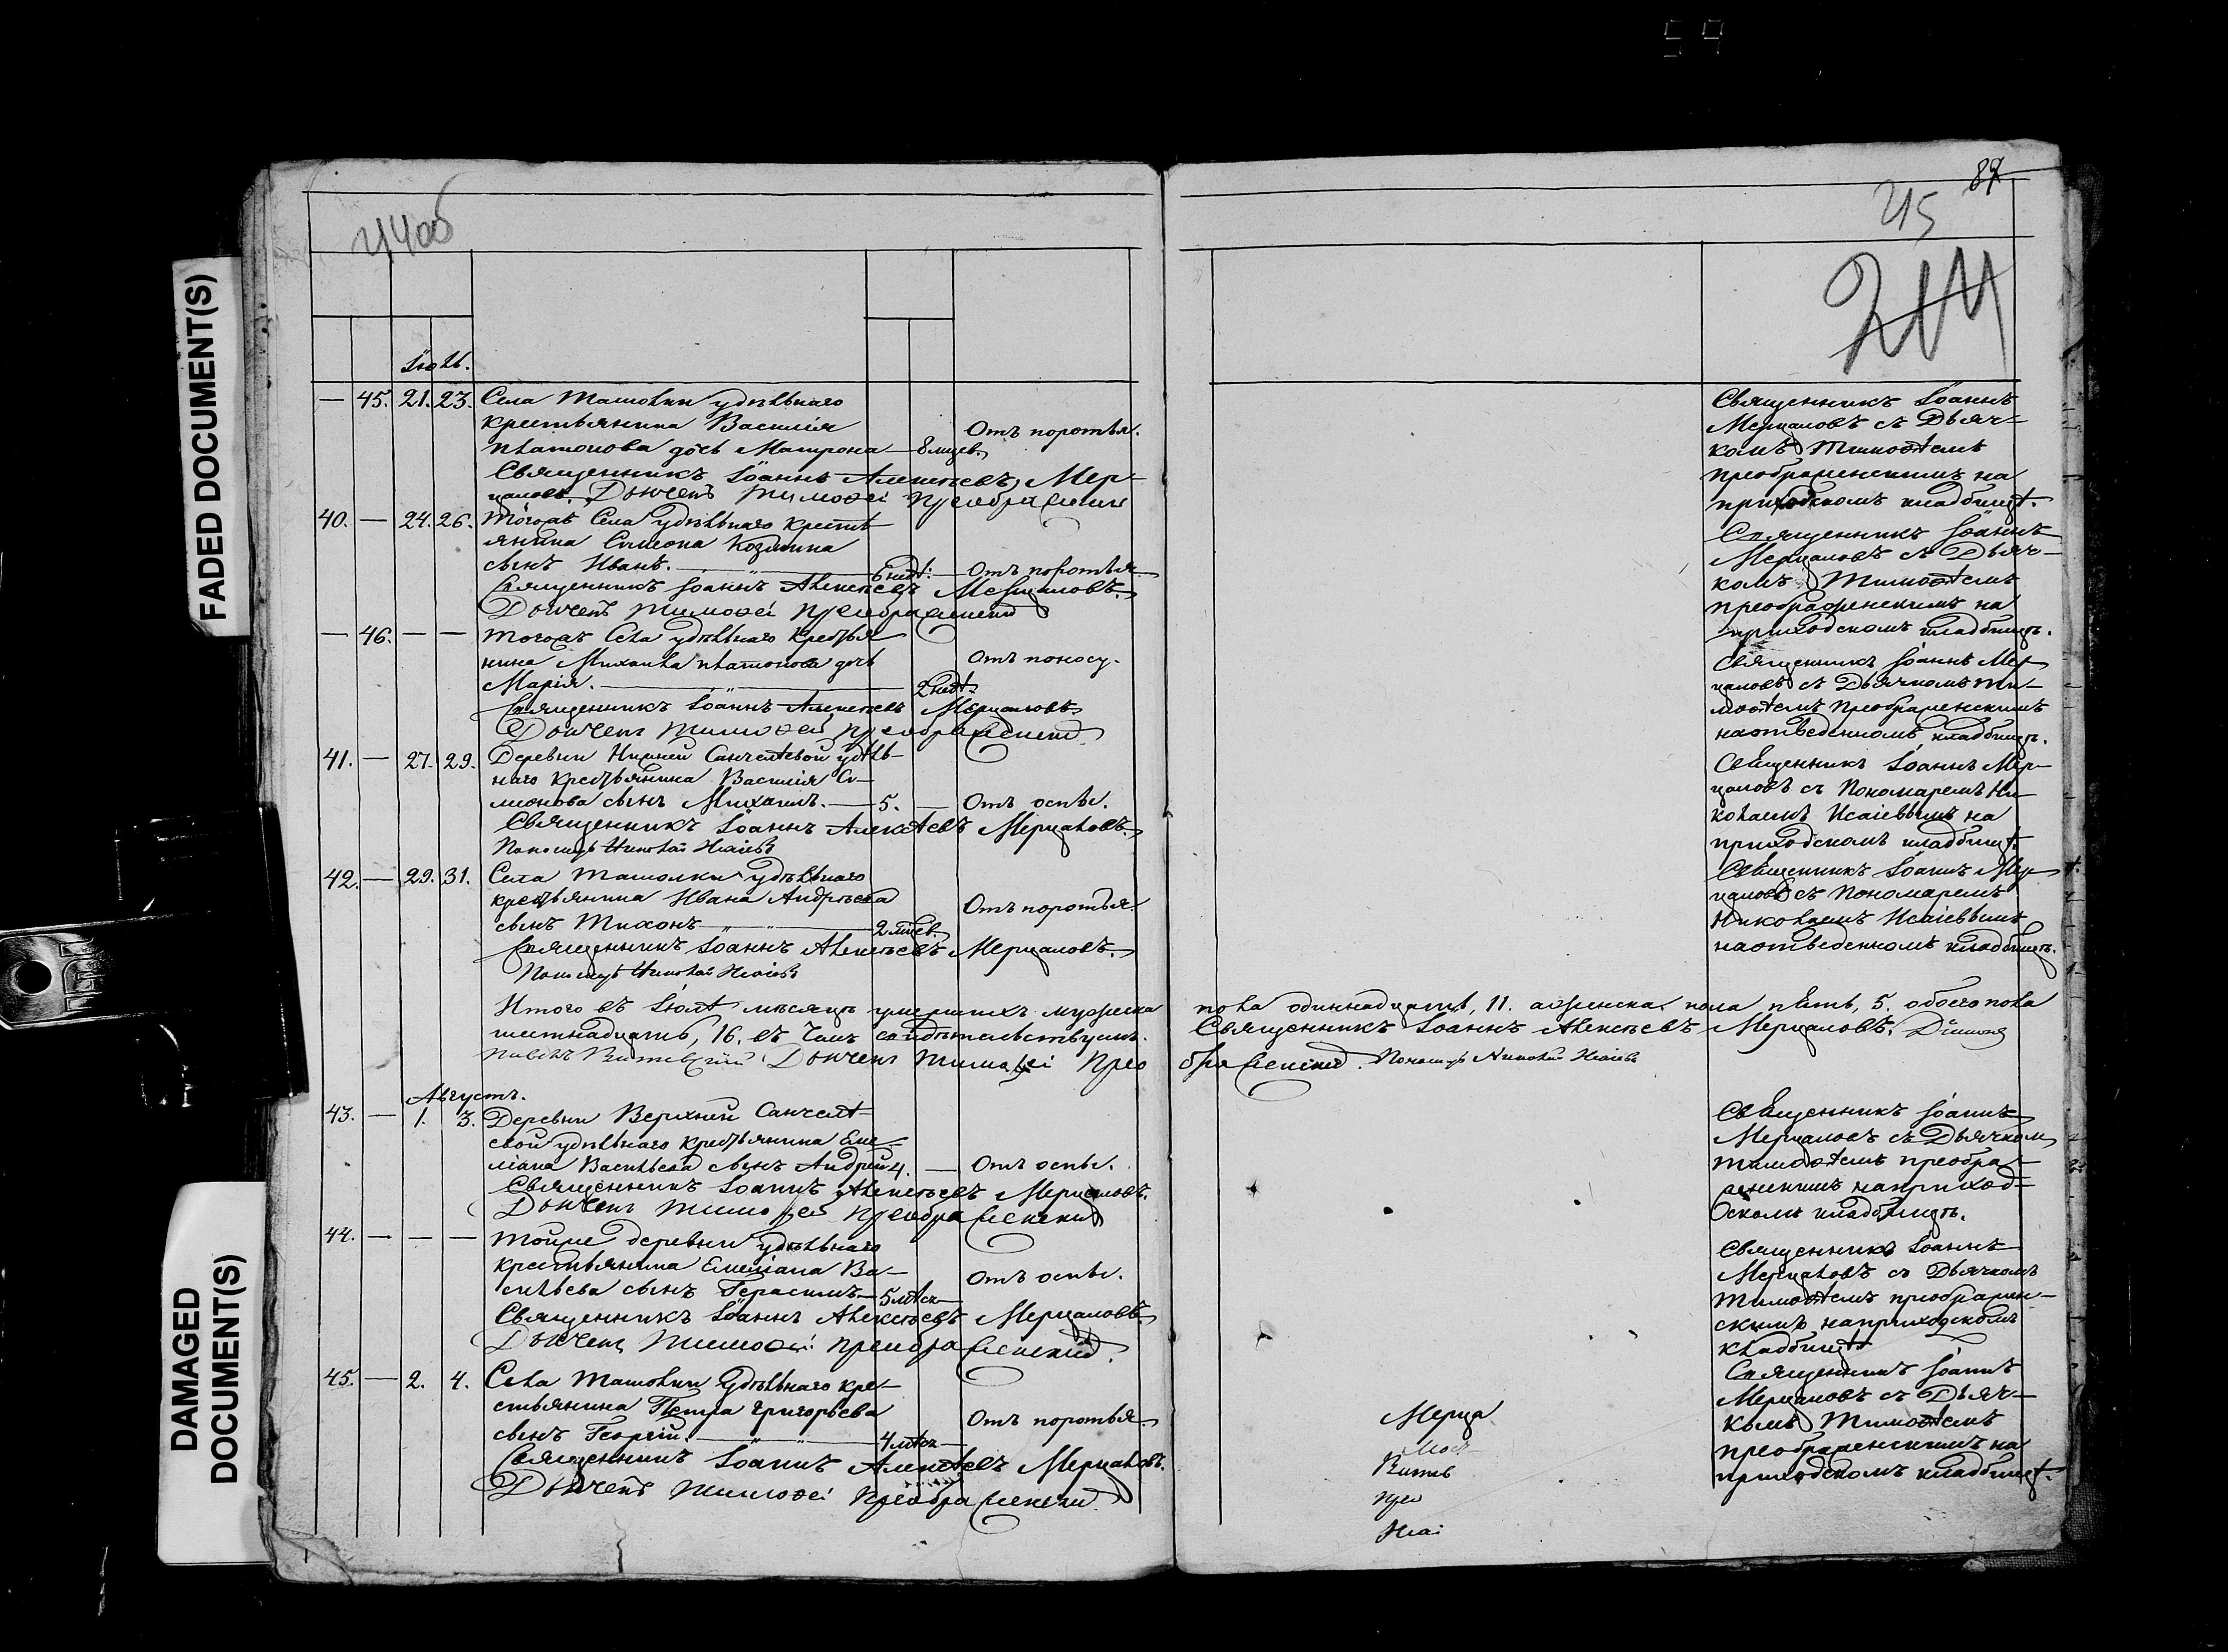 59
FADED DOCUMENT(S)
DAMAGED
DOCUMENT(S)
44об
87
45
214
Іюль.
— 45. 21. 23. Села Ташолки удѣльнаго
крестьянина Василія
Платонова дочь Матрона — 8 мцев. Отъ поротья.
Священникъ Іоаннъ Алексѣевъ Мер-
цаловъ. Дьячекъ Тимоѳей Преображенскій
Священникъ Іоаннъ
Мерцаловъ съ Дьяч-
комъ Тимоѳѣемъ
Преображенскимъ на
приходскомъ кладбищѣ.
40. — 24. 26. Тогожъ Села удѣльнаго крестъ
янина Симеона Козмина
сынъ Иванъ. — 6 недѣ. — Отъ поротья
Священникъ Іоаннъ Алексѣевъ Мерцаловъ.
Дьячекъ Тимоѳей Преображенскій
Священникъ Іоаннъ
Мерцаловъ съ Дьяч-
комъ Тимоѳѣемъ
Преображенскимъ на
приходскомъ кладбищѣ.
— 46. — — Тогожъ Села удѣльнаго крестья
нина Михаила Платонова дочь Отъ поносу.
Марія. — 2 недѣ.
Священникъ Іоаннъ Алексѣевъ Мерцаловъ
Дьячекъ Тимоѳей Преображенскій
Священникъ Іоаннъ Мер
цаловъ съ Дьячкомъ Ти-
моѳѣемъ Преображенскимъ
на отведенномъ кладбищѣ.
41. — 27. 29. Деревни Нижней Санчелѣевой удѣль-
наго крестьянина Василія Си-
мионова сынъ Михаилъ. — 5. — Отъ оспы.
Священникъ Іоаннъ Алексѣевъ Мерцаловъ.
Пономарь Николай Исаіевъ
Священникъ Іоаннъ Мер-
цаловъ съ Пономаремъ Ни-
колаемъ Исаіевымъ на
приходскомъ кладбищѣ.
42. — 29. 31. Села Ташолки удѣльнаго
крестьянина Ивана Андреева
сынъ Тихонъ — 2 мцев. Отъ поротья.
Священникъ Іоаннъ Алексѣевъ Мерцаловъ.
Пономарь Николай Исаіевъ
Священникъ Іоаннъ Мер
цаловъ съ Пономаремъ
Николаемъ Исаіевымъ
на отведенномъ кладбищѣ.
Итого въ Іюлѣ мѣсяцѣ умершихъ мужеска пола одиннадцать, 11. а женска пола пять, 5. обоего пола
шестнадцать, 16. въ чемъ свидѣтельствуемъ. Священникъ Іоаннъ Алексѣевъ Мерцаловъ. Діаконъ
Дьячекъ Тимоѳей Преображенскій. Пономарь Николай Исаіевъ
Августъ.
43. — 1. 3. Деревни Верхней Санчелѣ-
евой удѣльнаго крестьянина Еме-
ліана Васильева сынъ Андрей 4. — Отъ оспы.
Священникъ Іоаннъ Алексѣевъ Мерцаловъ.
Дьячекъ Тимоѳей Преображенскій
Священникъ Іоаннъ
Мерцаловъ съ Дьячкомъ
Тимоѳѣемъ Преобра-
женскимъ на приход-
скомъ кладбищѣ.
44. — — — Тойже деревни удѣльнаго
крестьянина Емеліана Ва-
сильева сынъ Герасимъ — 5 мѣся Отъ оспы.
Священникъ Іоаннъ Алексѣевъ Мерцаловъ
Дьячекъ Тимоѳей Преображенскій.
Священникъ Іоаннъ
Мерцаловъ съ Дьячкомъ
Тимоѳѣемъ Преображен-
скимъ на приходскомъ
кладбищѣ
45. — 2. 4. Села Ташолки Удѣльнаго кре-
стьянина Петра Григорьева
сынъ Георгій. — 4 мѣся Отъ поротья
Священникъ Іоаннъ Алексѣевъ Мерцаловъ.
Дьячекъ Тимоѳей Преображенскій
Священникъ Іоаннъ
Мерцаловъ съ Дьяч-
комъ Тимоѳѣемъ
Преображенскимъ на
приходскомъ кладбищѣ.
Мерца
Витев
Прео
Исаі